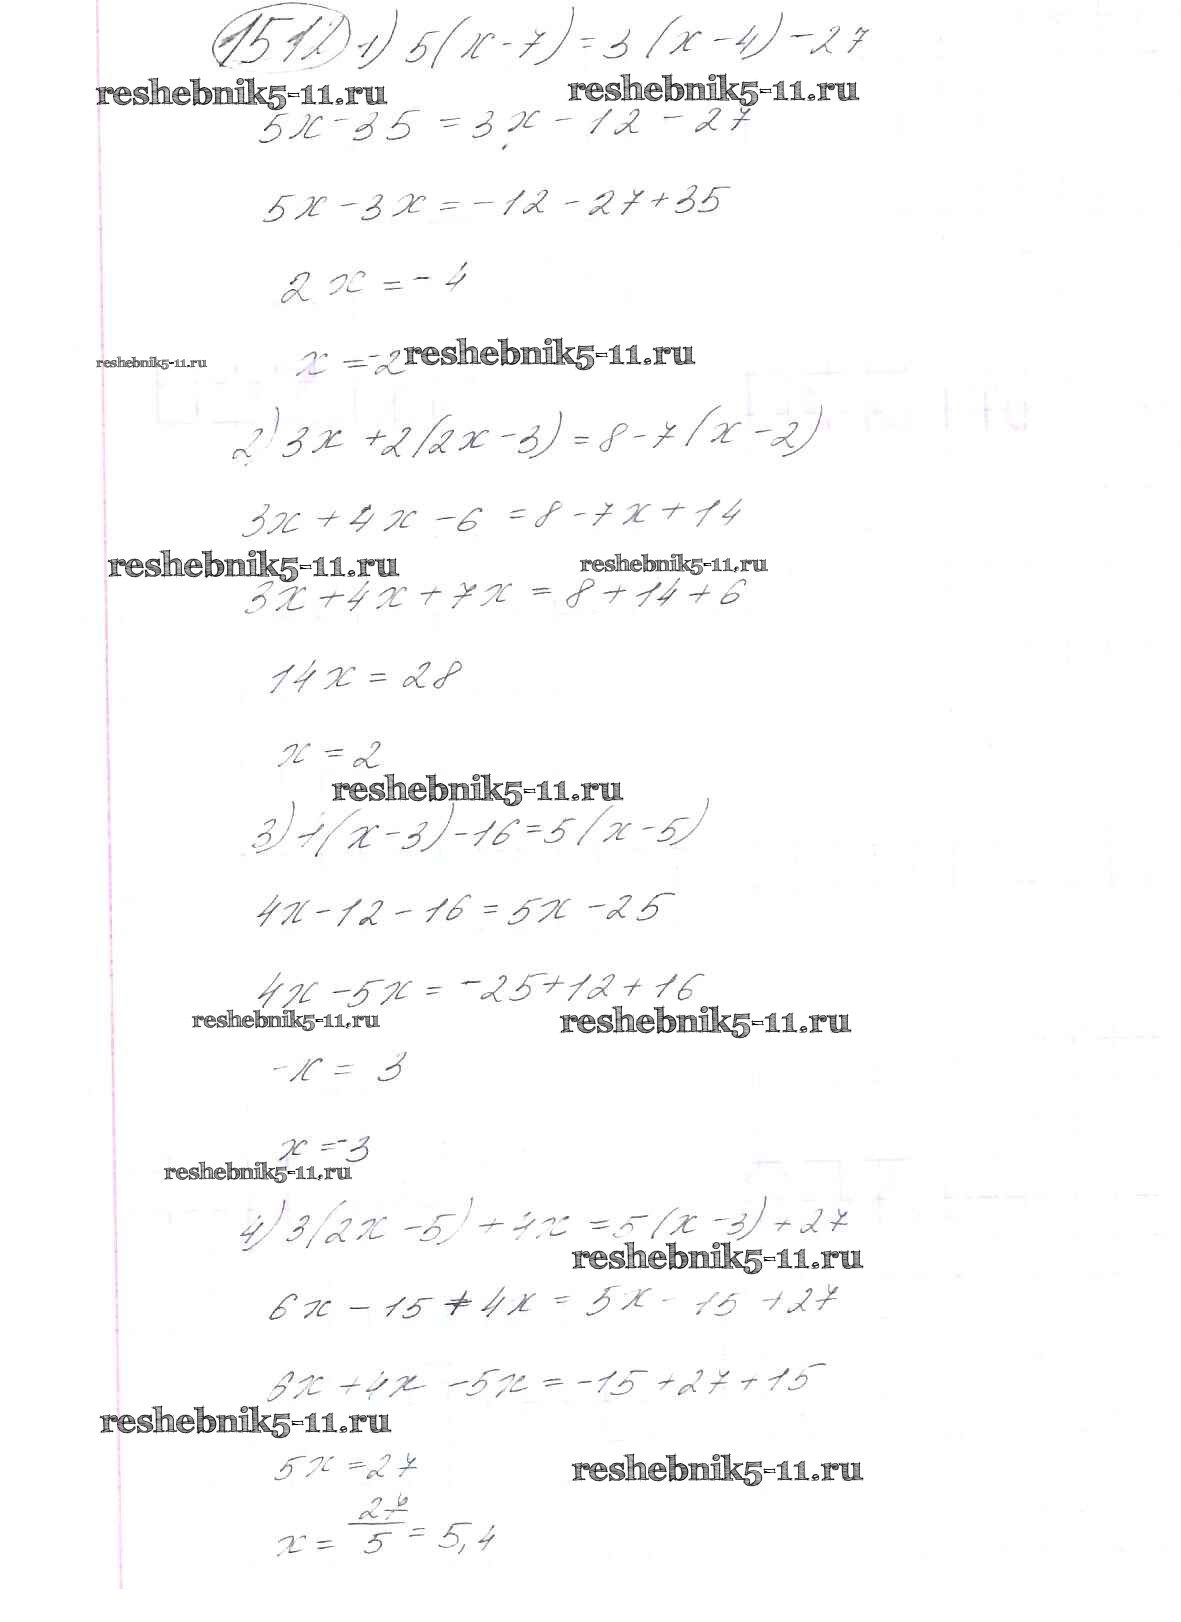 1512 1) 5(x-7)=3(x-4)-27
reshebnik5-11.ru reshebnik5-11.ru
5x-35=3x-12-27
5x-3x=-12-27+35
2x=-4
reshebnik5-11.ru x=-2 reshebnik5-11.ru
2) 3x+2(2x-3)=8-7(x-2)
3x+4x-6=8-7x+14
reshebnik5-11.ru reshebnik5-11.ru
3x+4x+7x=8+14+6
14x=28
x=2
reshebnik5-11.ru
3) 4(x-3)-16=5(x-5)
4x-12-16=5x-25
4x-5x=-25+12+16
reshebnik5-11.ru reshebnik5-11.ru
-x=3
x=-3
reshebnik5-11.ru
4) 3(2x-5)+4x=5(x-3)+27
reshebnik5-11.ru
6x-15+4x=5x-15+27
6x+4x-5x=-15+27+15
reshebnik5-11.ru
5x=27
reshebnik5-11.ru
x=27/5=5,4